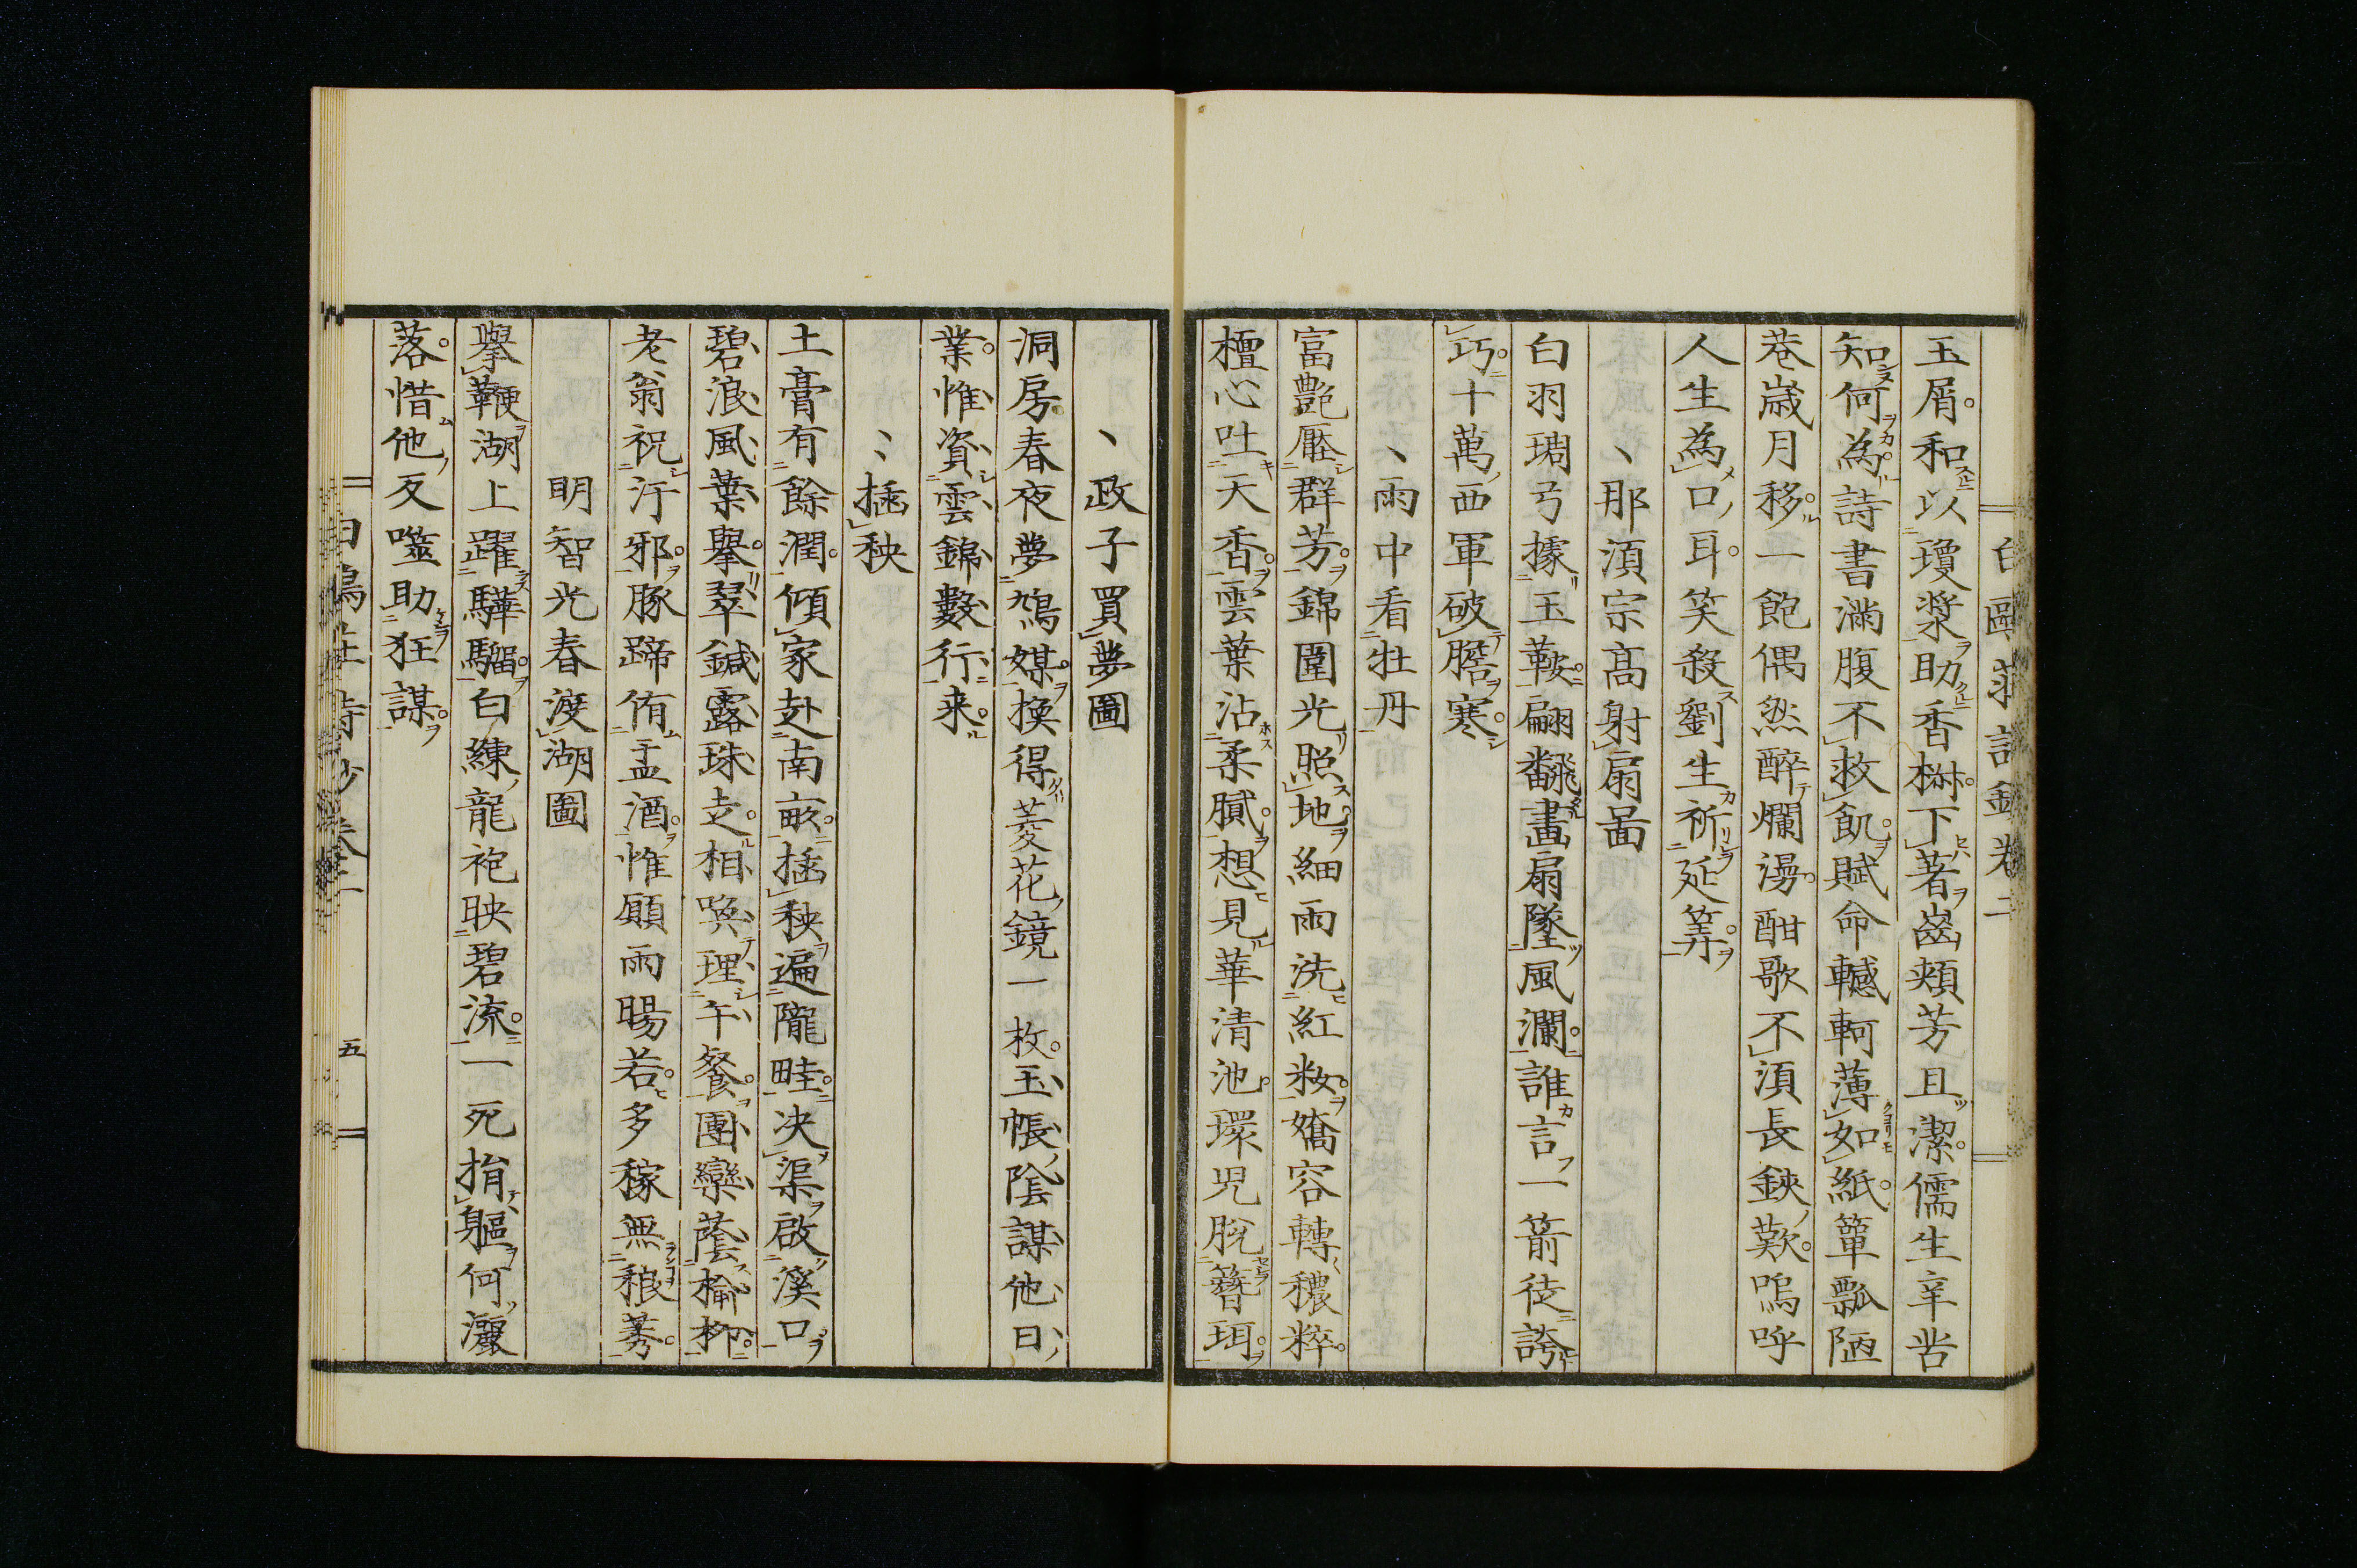 玉屑和以瓊漿助香椒下著齒頰芳且潔儒生辛苦
知何為詩書滿腹不救飢賦命轗軻薄如紙簞瓢陋
巷歲月移一飽偶然醉爛漫酣歌不須長鋏歎嗚呼
人生為口耳笑殺劉生祈延筭
、那須宗高射扇啚
白羽琱弓據玉鞍翩翻畫扇墜風瀾誰言一箭徒誇
巧十萬西軍破膽寒
、雨中看牡丹
富艷壓群芳錦圍光照地細雨洗紅妝嬌容轉穠粹
檀心吐天香雲葉沾柔膩想見華清池環児脫簪珥
、政子買夢圖
洞房春夜夢鴆媒換得菱花鏡一枚玉帳陰謀他日
業惟資雲錦數行来
、插秧
土膏有餘潤傾家赴南畝插秧遍隴畦決渠啟溪口
碧浪風葉擧翠鍼露珠走相喚理午餐團欒蔭楡柳
老翁祝汙邪豚蹄侑盂酒惟願雨暘若多稼無稂莠
明智光春渡湖圖
擧鞭湖上躍驊騮白練龍袍映碧流一死捐軀何灑
落惜他反噬助狂謀
五